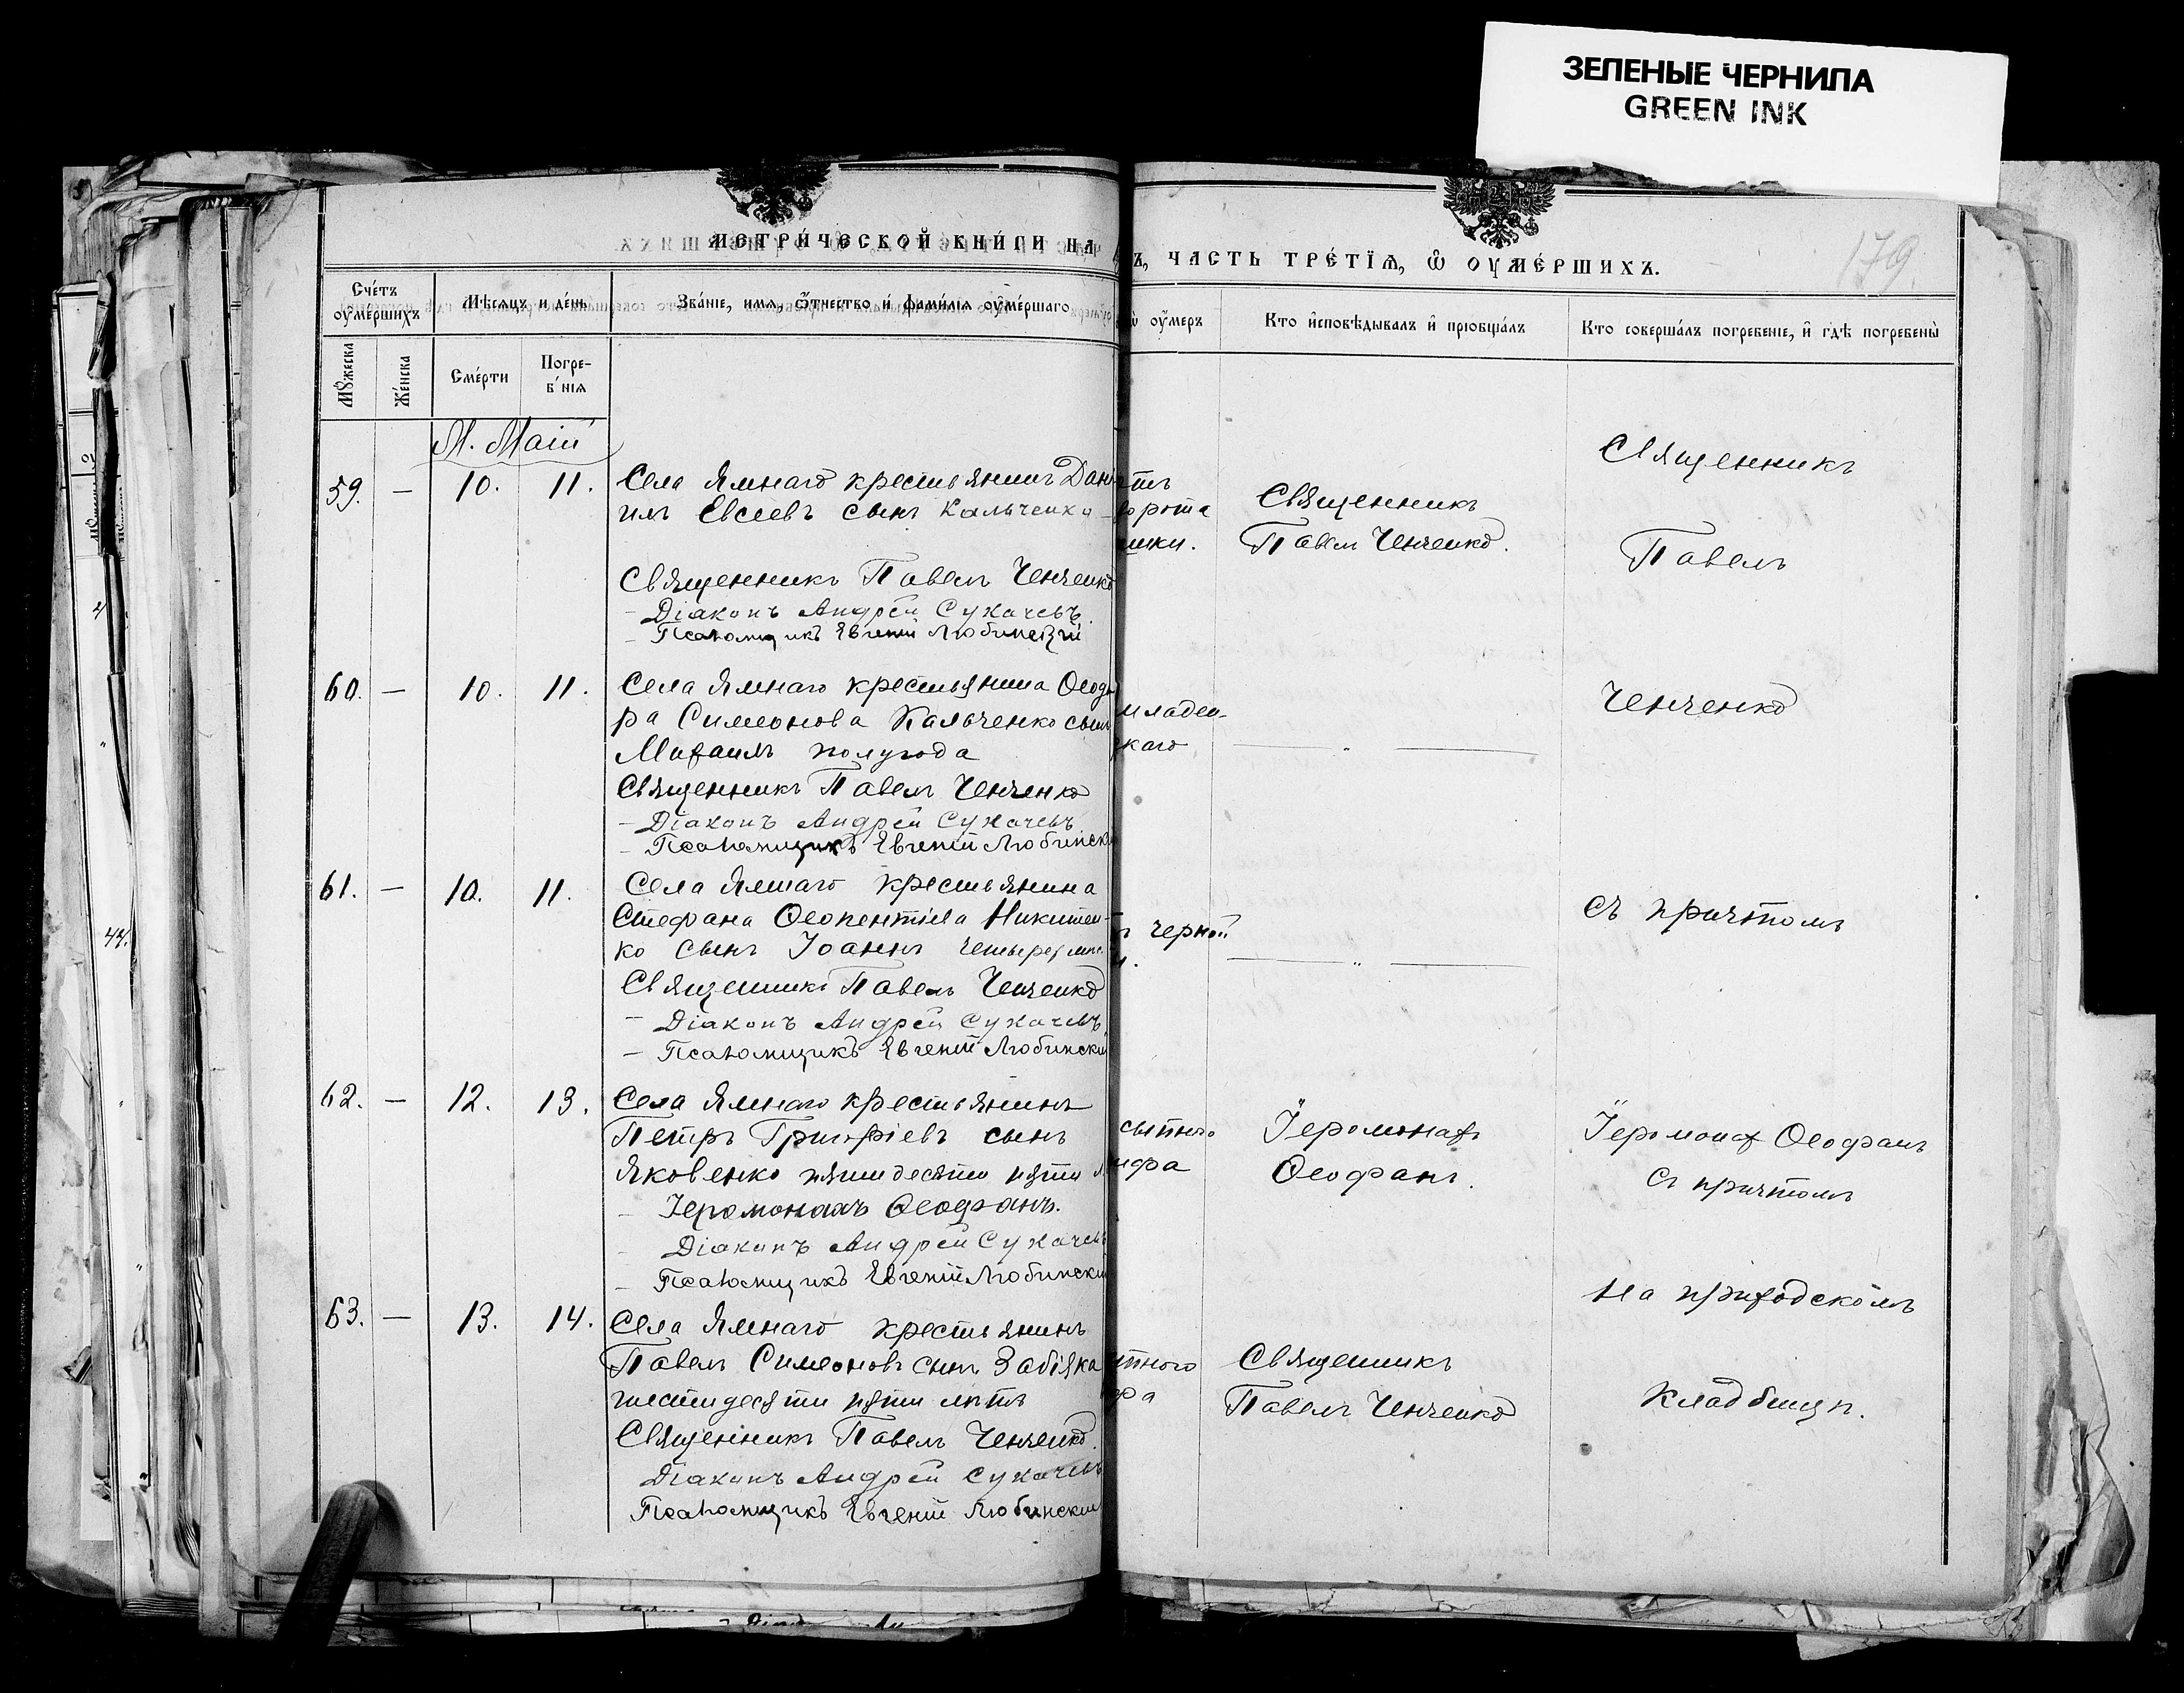 ЗЕЛЕНЫЕ ЧЕРНИЛА
GREEN INK
МЕТРИ́ЧЕСКОЙ КНИ́ГИ НА
Ъ, ЧАСТЬ ТРЕ́ТІѦ, Ѽ ОУМЕ́РШИХЪ.
179.
Сче́тъ оуме́ршихъ
Мѣсяцъ и де́нь
Зва́ніе, имя, ѿтчество и фами́лія оуме́ршаго
оумеръ
Кто исповѣдывалъ и пріобща́лъ
Кто соверша́лъ погребеніе, и гдѣ погребены
Мꙋжеска
Же́нска
Сме́рти
Погре-
б́нія
М. Маій
59. — 10. 11. Села Ямнаго крестьянинъ Дані
илъ Евсеевъ сынъ Кальченко
Священникъ Павелъ Ченченко
- Діаконъ Андрей Сукачевъ.
- Псаломщикъ Евгеній Любинскій
ворота
шки.
Священникъ
Павелъ Ченченко.
Священникъ
Павелъ
60. — 10. 11. Села Ямнаго крестьянина Ѳеодо
ра Симеонова Кальченко сынъ
Михаилъ полугода
Священникъ Павелъ Ченченко
- Діаконъ Андрей Сукачевъ
- Псаломщикъ Евгеній Любинскі
младен-
скаго
— „ —
Ченченко
61. — 10. 11. Села Ямнаго крестьянина
Стефана Ѳеопентіева Никитен-
ко сынъ Іоаннъ четырех
Священникъ Павелъ Ченченко
- Діаконъ Андрей Сукачевъ.
- Псаломщикъ Евгеній Любинскій
черной
— „ —
съ причтомъ
62. — 12. 13. Села Ямнаго крестьянинъ
Петръ Григоріевъ сынъ
Яковенко пятидесяти пяти л
- Іеромонахъ Ѳеофанъ.
- Діаконъ Андрей Сукачевъ
- Псаломщикъ Евгеній Любинскій
сыпного
ифа
Іеромонахъ
Ѳеофанъ.
Іеромонах Ѳеофанъ
съ причтомъ
63. — 13. 14. Села Ямнаго крестьянинъ
Павелъ Симеоновъ сынъ Забіяка
шестидесяти пяти лѣтъ
Священникъ Павелъ Ченченко.
Діаконъ Андрей Сукачевъ
Псаломщикъ Евгеній Любинскій
пного
фа
Священникъ
Павелъ Ченченко
на приходскомъ
кладбищѣ.
44.